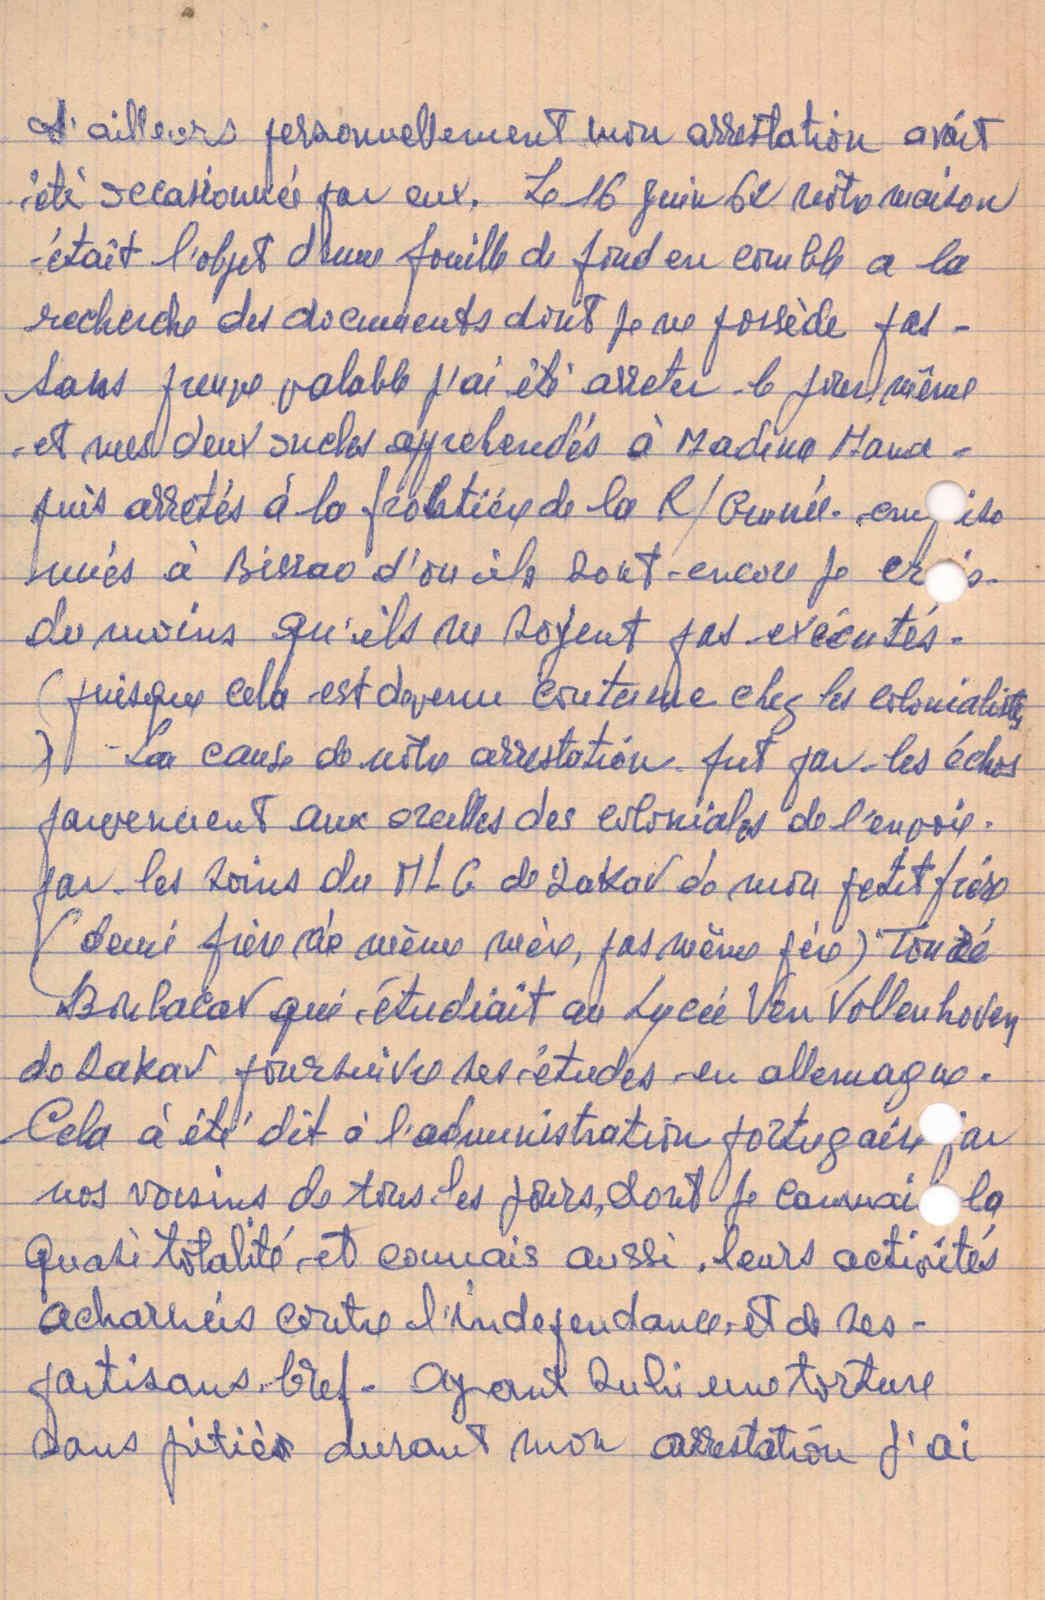 d'ailleurs personnellement mon arrestation avait
été occasionnée par eux. Le 16 Juin 62 nôtre maison
étaît l'objet d'une fouille de fond en comble a la
recherche des documents dont je ne possède pas -
Sans preuve valable j'ai été arreter le jour même
et mes deux oncles apprehendés à Madina Mana -
puis arretés à la frontière de la R/Guinée. empiso
nnés à Bissao d'ou ils sont encore je crois -
du moins qu'ils ne soyent pas exécutés -
(puisque cela est devenu coutume chez les colonialistes
) La cause de nôtre arrestation fut par les échos
parvennent aux oreilles des coloniales de l'envoie
par les soins du MLG de Dakar de mon petit frère
(demi frère de même mère, pas même père) Touré
Boubacar qui étudiait au Lycée Van Vollenhoven
de Dakar poursuivre ses études en allemagne.
Cela à été dit à l'administration portugaise par
nos voisins de tous les jours, dont je connais la
quasi totalité et connais aussi leurs activités
acharnées contre l'independance et de ses -
partisans. bref - Ayant subi une torture
sans pitiés durant mon arrestation j'ai